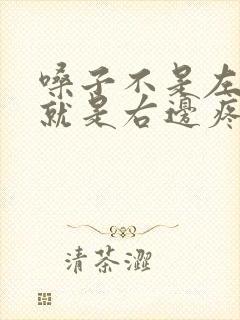 嗓子不是左
就是右邊疼
清茶澀